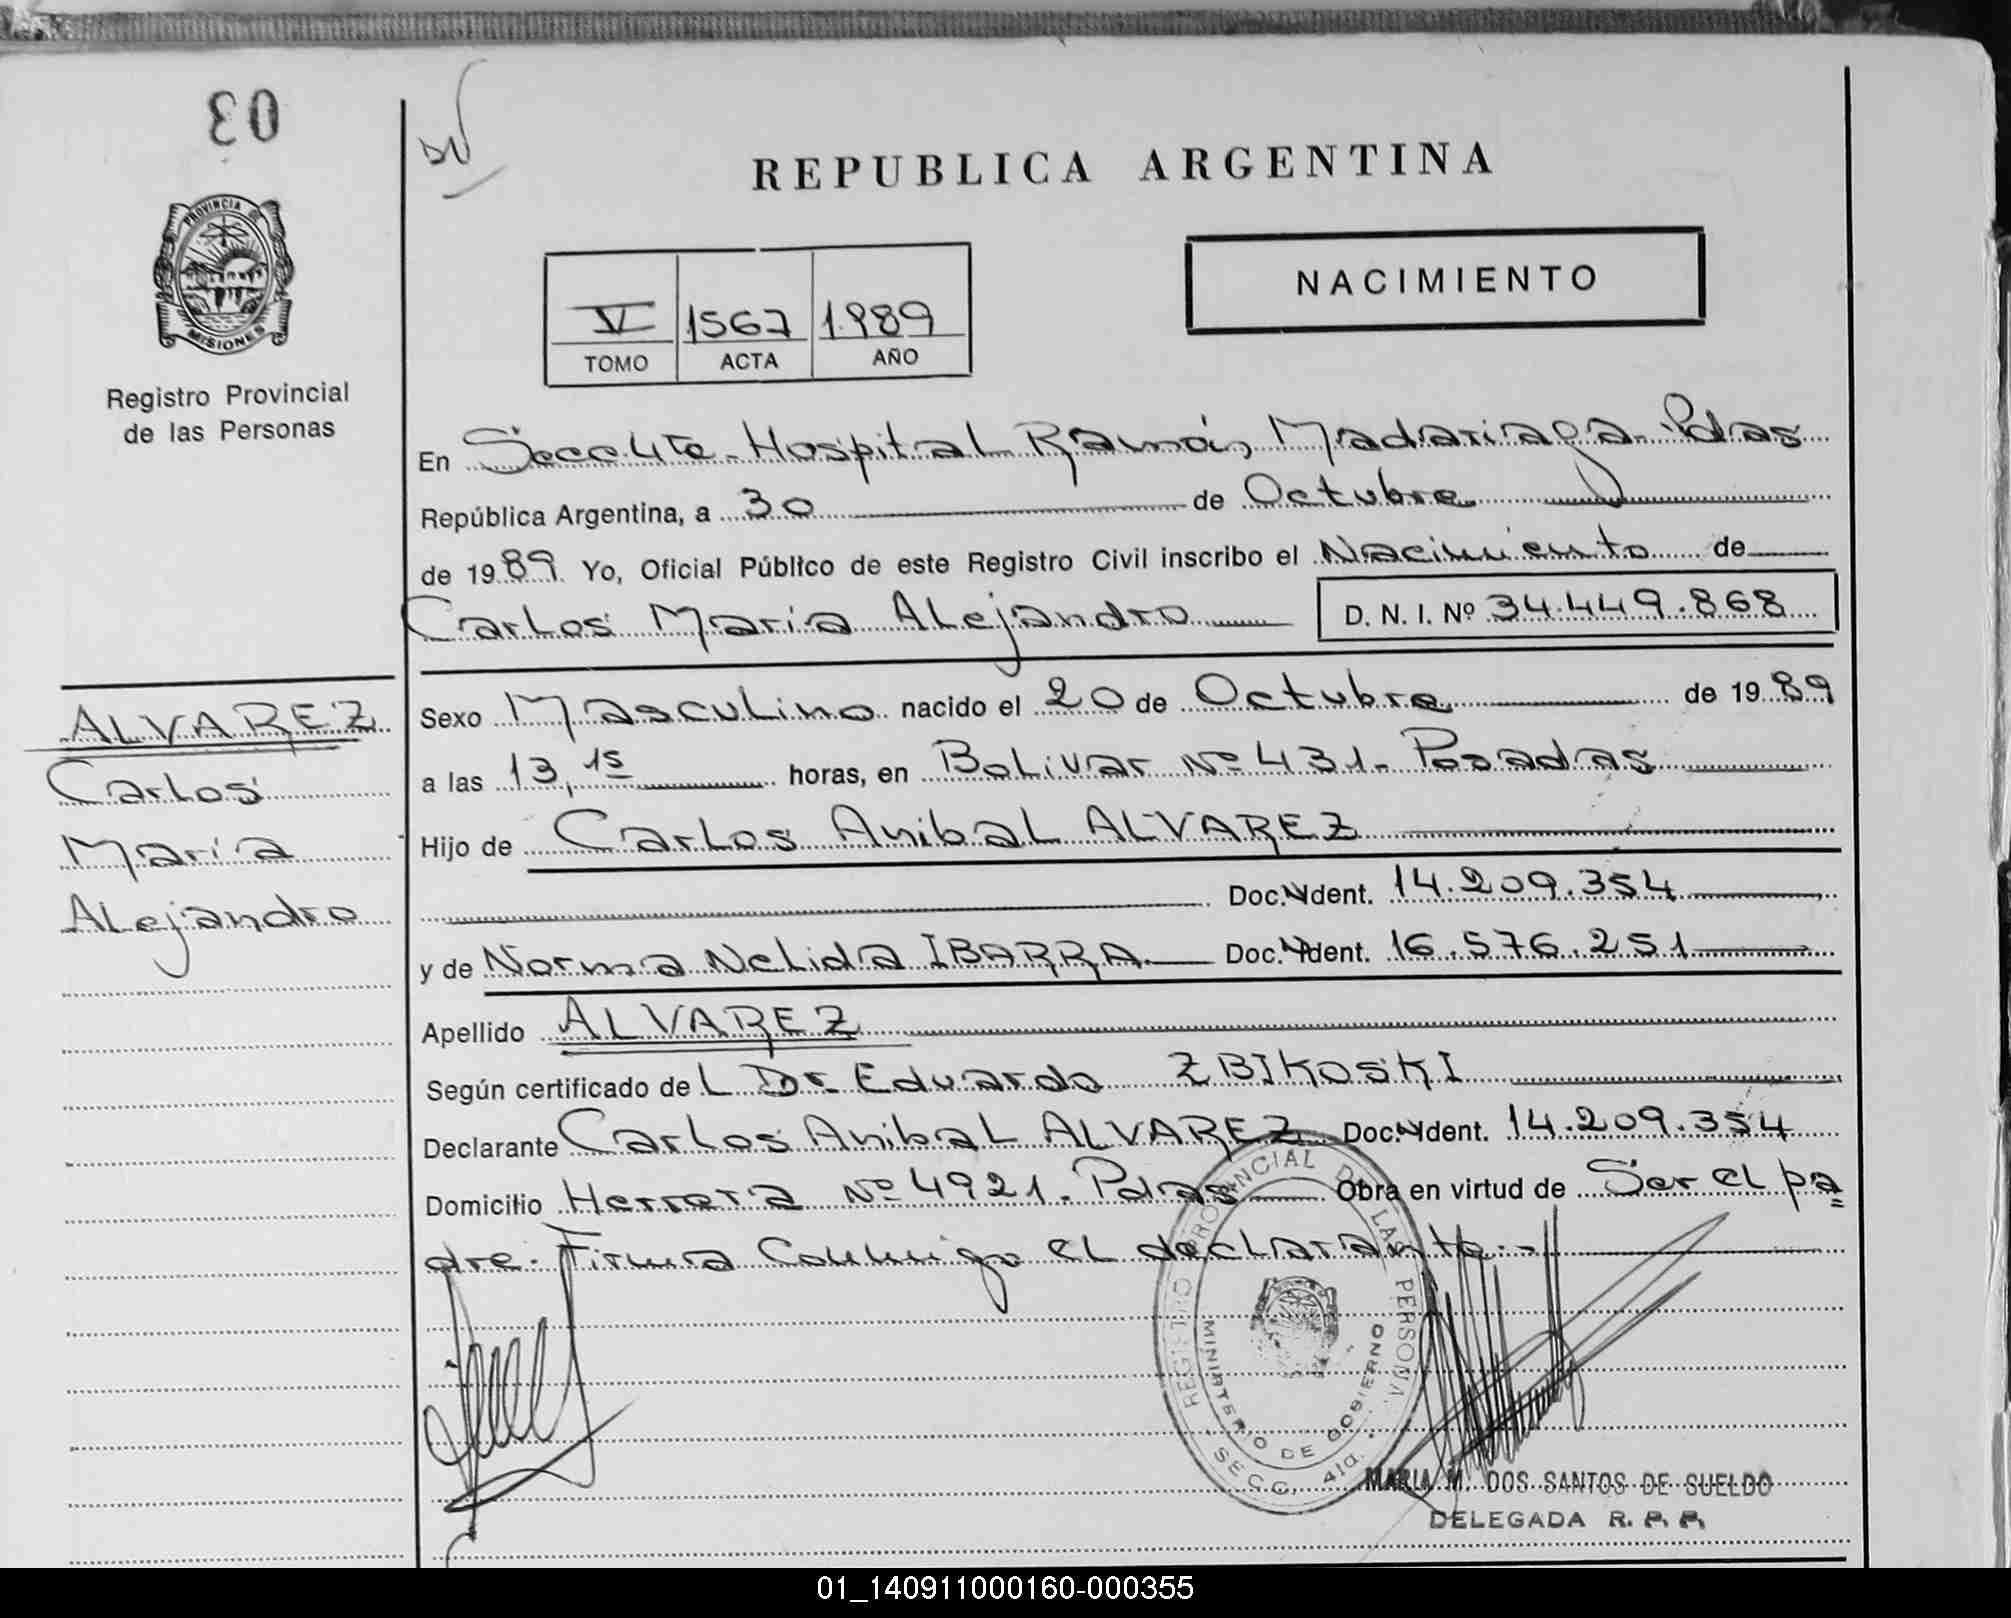 03
DV
REPUBLICA ARGENTINA
PROVINCIA DE
MISIONES
Registro Provincial
de las Personas
V 1567 1.989
TOMO ACTA AÑO
NACIMIENTO
En Secc 4ta - Hospital Ramón Madariaga - Pdas
República Argentina, a 30 de Octubre
de 1989. Yo, Oficial Público de este Registro Civil inscribo el Nacimiento de
Carlos María Alejandro D. N. I. Nº 34.449.868
Sexo Masculino nacido el 20 de Octubre de 1989
a las 13,15 horas, en Bolivar Nº 431 - Posadas
Hijo de Carlos Anibal ALVAREZ
Doc. Ident. 14.209.354
y de Norma Nelida IBARRA Doc. Ident. 16.576.251
Apellido ALVAREZ
Según certificado del Dr. Eduardo ZBIKOSKI
Declarante Carlos Anibal ALVAREZ Doc. Ident. 14.209.354
Domicilio Herrera Nº 4921 - Pdas Obra en virtud de Ser el pa=
dre. Firma Conmigo el declarante.-
ALVAREZ
Carlos
María
Alejandro
REGISTRO PROVINCIAL DE LAS PERSONA
MINIRTERIO DE GOBIERNO
SECC. 4ta.
MARIA M. DOS SANTOS DE SUELDO
DELEGADA R. P. P.
01_140911000160-000355